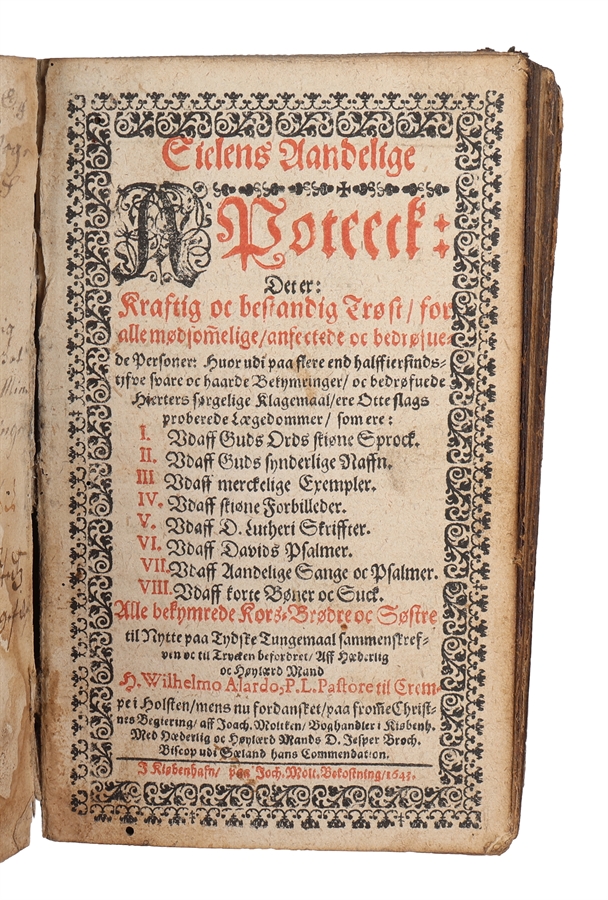 Sielens Aandelige
APoteeck:
Det er:
Kraftig oc bestandig Trøst/ for
alle mødsom̃elige/ anfectede oc bedrøfue-
de Personer: Huor udi paa flere end halffierfinds-
tyfve svare oc haarde Bekymringer/ oc bedrøfuede
Hierters sørgelige Klagemaal/ ere Otte slags
proberede Lægedommer/ som ere:
I. Vdaff Guds Ords skiøne Sprock.
II. Vdaff Guds synderlige Naffn.
III Vdaff merckelige Exempler.
IV. Vdaff skiøne Forbilleder.
V. Vdaff D. Lutheri Skriffter.
VI. Vdaff Davids Psalmer.
VII. Vdaff Aandelige Sange oc Psalmer.
VIII. Vdaff korte Bøner oc Suck.
Alle bekymrede Kors-Brødre oc Søstre
til Nytte paa Tydske Tungemaal sammenskref-
ven oc til Trycken befordret/ Aff Hæderlig
oc Høylærd Mand
H. Wilhelmo Alardo, P. L. Pastore til Crem-
pe i Holsten/ mens nu fordansket/ paa from̃e Christ-
nes Begiering/ aff Joach. Moltken/ Boghandler i Kiøbenh.
Med Hæderlig oc Høylærd Mands D. Jesper Broch.
Biscop udi Sæland hans Commendation.
J Kiøbenhafn/ paa Joch. Molt. Bekostning/ 1643.